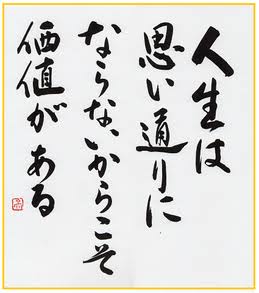 人生は
思い通りに
ならないからこそ
価値がある